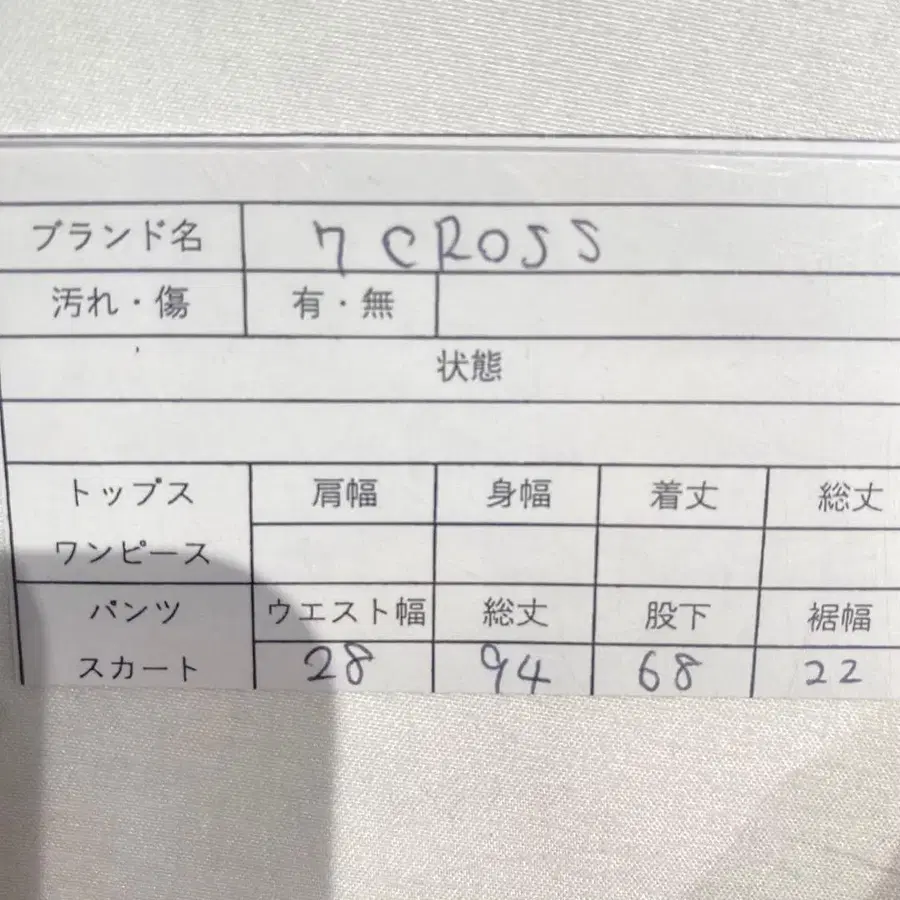 ブランド名 7 CROSS
汚れ・傷 有・無
状態
トップス 肩幅 身幅 着丈 総丈
ワンピース
パンツ ウエスト幅 総丈 股下 裾幅
スカート 28 94 68 22